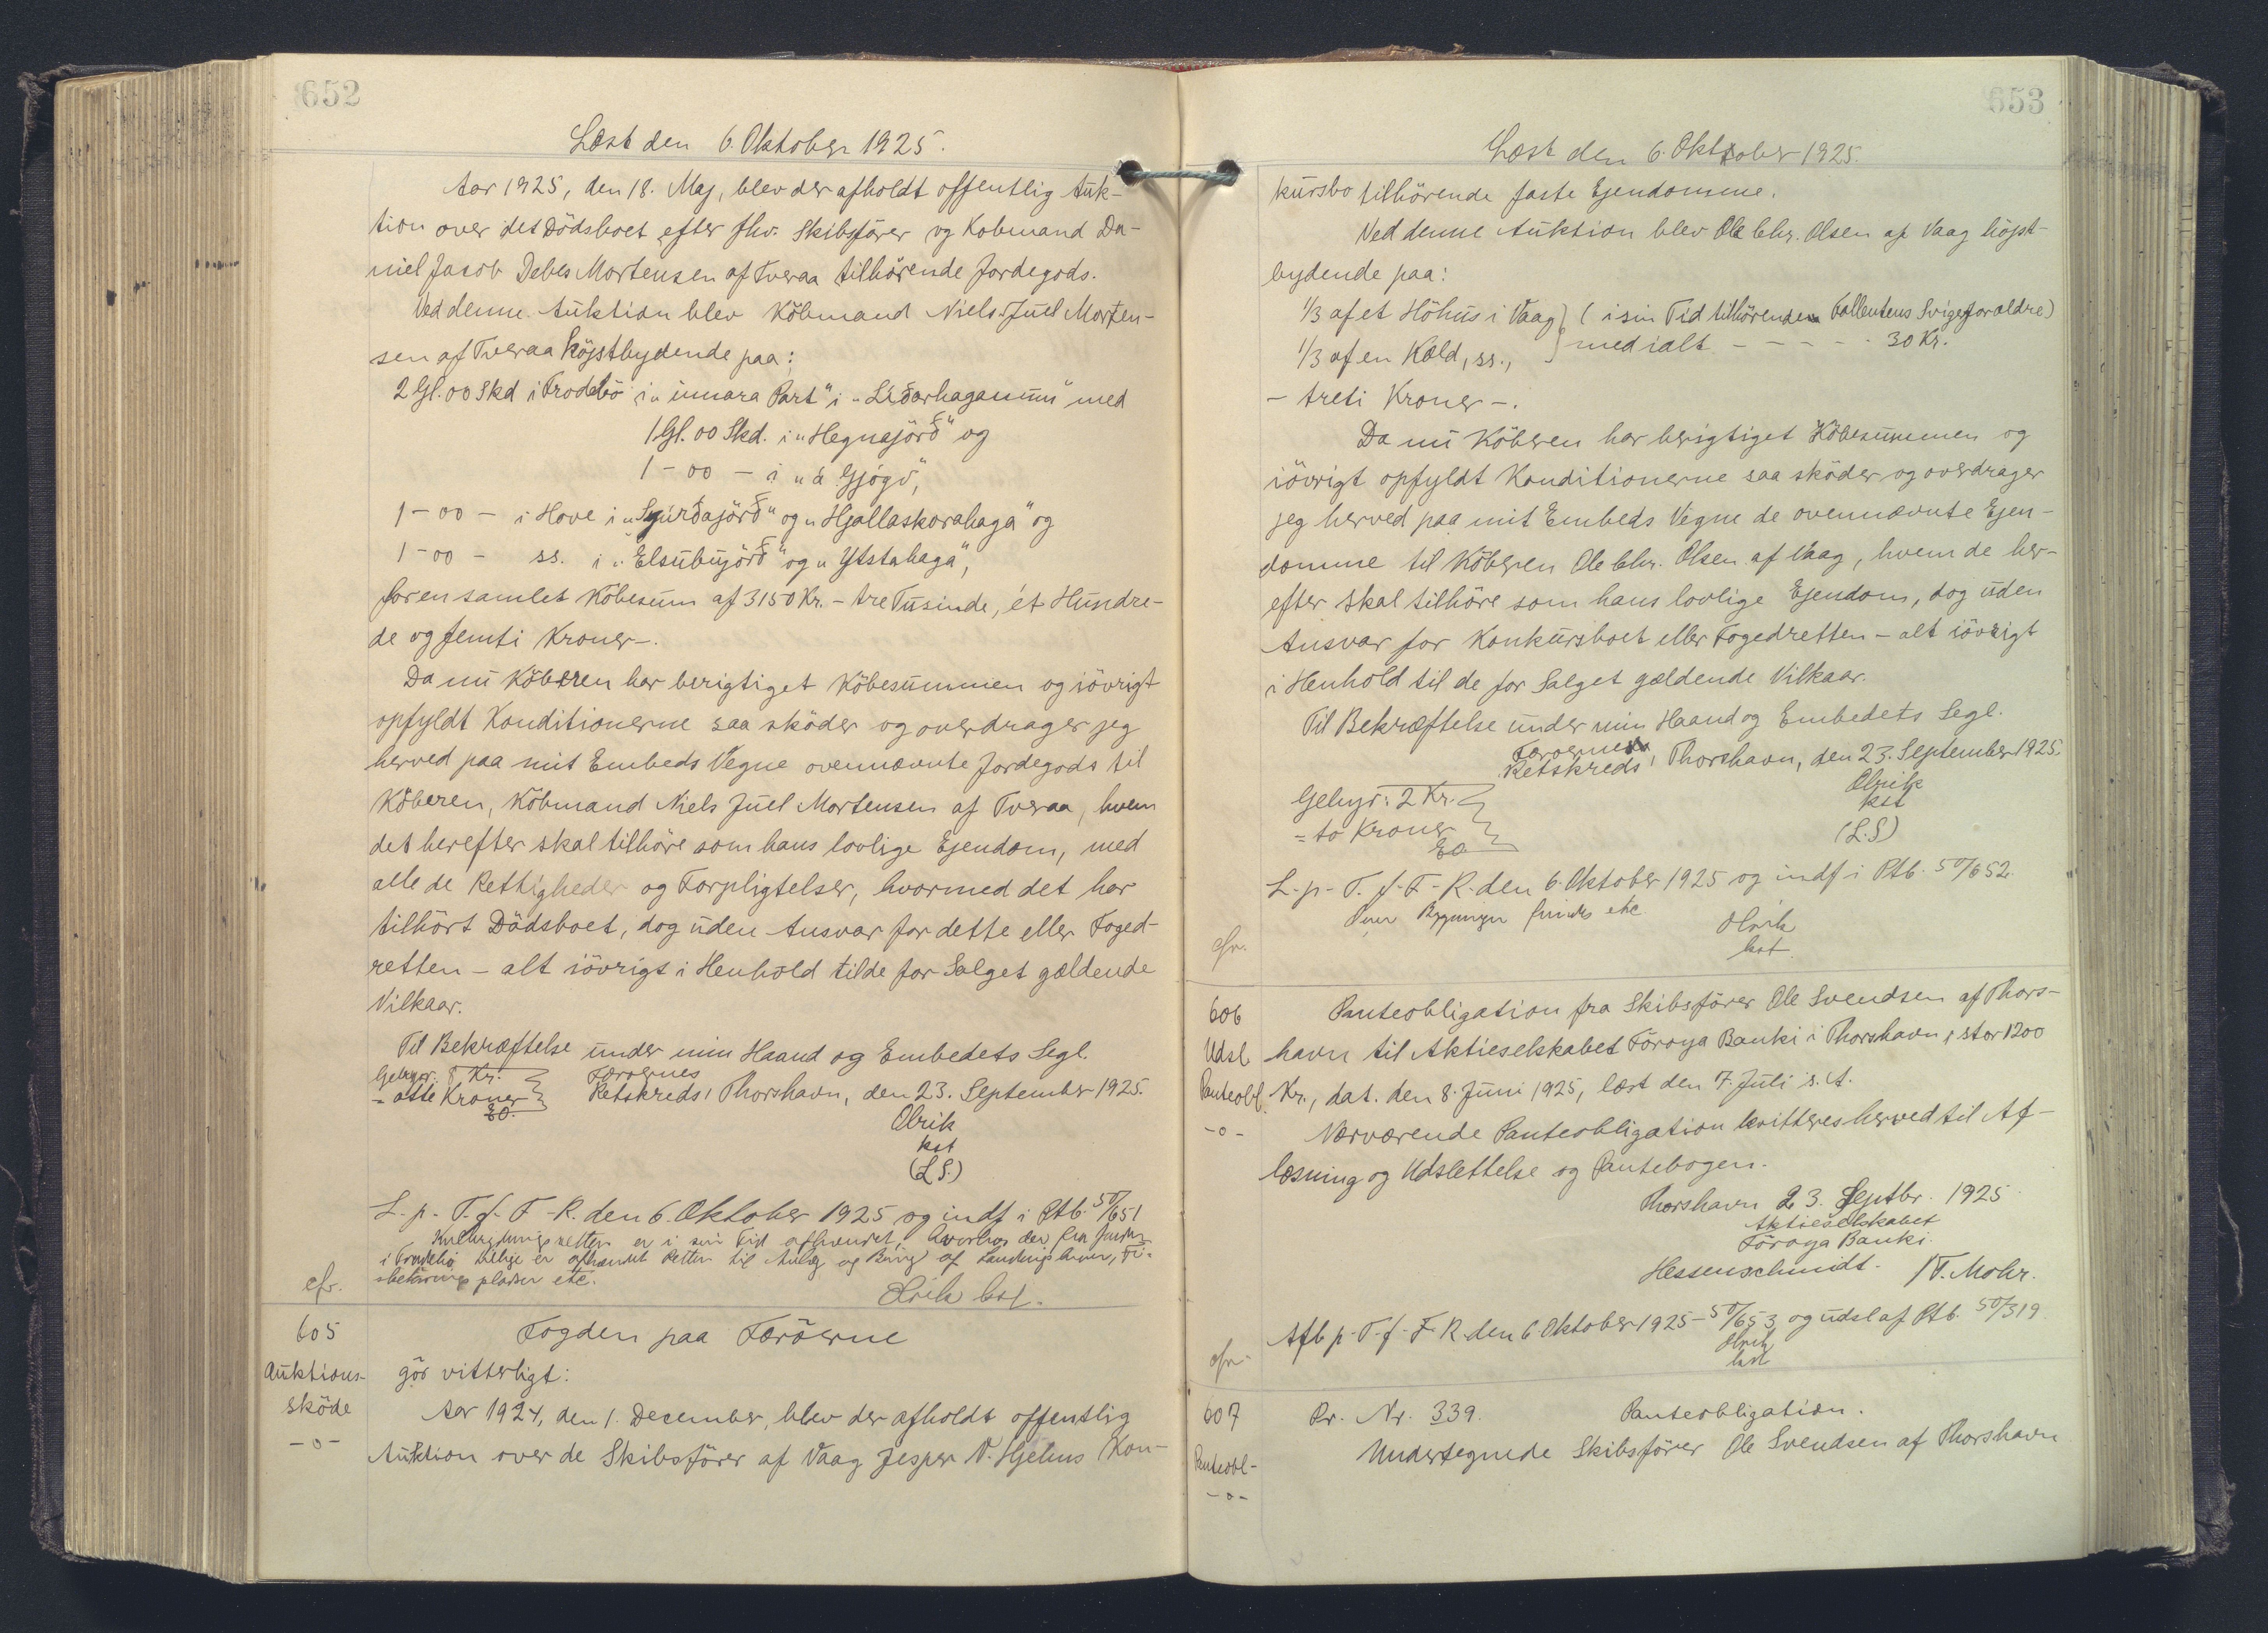 652
Læst den 6. Oktober 1925.
Aar 1925, den 18. Maj, blev der afholdt offentlig Auk-
tion over det Dödsboet efter fhv. Skibsförer og Kobmand Da-
niel Jacob Debes Mortensen af Tveraa tilhörende Jordegods.
Ved denne Auktion blev Köbmand Niels Juel Morten-
sen af Tveraa höjstbydende paa:
2 Gl. 00 Skd i Frodebö i „innara Part" i „Lidarhaganum" med
1 Gl. 00 Skd. i „Hegnajörð" og
1 - 00 - i „á Gjógv",
1 - 00 - i Hove i „Sjúrðajörð" og „Hjallaskorahaga" og
1 - 00 - ss. i „Elsubujörð" og „Ytstahaga",
for en samlet Köbesum af 3150 Kr. - tre Tusinde, ét Hundre-
de og femti Kroner -.
Da nu Köberen har berigtiget Köbesummen og iövrigt
opfyldt Konditionerne saa sköder og overdrager jeg
herved paa mit Embeds Vegne ovennævnte Jordegods til
Köberen, Köbmand Niels Juel Mortensen af Tveraa, hvem
det herefter skal tilhöre som hans lovlige Ejendom, med
alle de Rettigheder og Forpligtelser, hvormed det har
tilhört Dödsboet, dog uden Ansvar for dette eller Foged-
retten - alt iövrigt i Henhold til de for Salget gældende
Vilkaar.
Til Bekræftelse under min Haand og Embedets Segl.
Gebyr: 8 Kr.
= otte Kroner
EO.
Færøernes
Retskreds, Thorshavn, den 23. September 1925.
Olrik
kst
(L.S.)
L. p. T. f. F. R. den 6. Oktober 1925 og indf i Ptb. 50/651
er i sin Tid afhændet, hvorhos der fra Jorden
i Frodebö tillige er afhændet Retten til Anlæg og Brug af Landingshavn, Fi-
pladser etc.
Olrik kst.
cfr.
605
Auktions-
sköde
-o-
Fogden paa Færöerne
gör vitterligt:
Aar 1924, den 1. December, blev der afholdt offentlig
Auktion over de Skibsförer af Vaag Jesper V. Hjelms Kon-
653
Læst den 6. Oktober 1925.
kursbo tilhörende faste Ejendomme.
Ved denne Auktion blev Ole Chr. Olsen af Vaag höjst-
bydende paa:
1/3 af et Höhus i Vaag } (i sin Tid tilhörende Fallentens Svigerforældre)
1/3 af en Kold, ss., } med ialt - - - - - 30 Kr.
- treti Kroner -.
Da nu Köberen har berigtiget Köbesummen og
iövrigt opfyldt Konditionerne saa sköder og overdrager
jeg herved paa mit Embeds Vegne de ovennævnte Ejen-
domme til Köberen Ole Chr. Olsen af Vaag, hvem de her-
efter skal tilhöre som hans lovlige Ejendom, dog uden
Ansvar for Konkursboet eller Fogedretten - alt iövrigt
i Henhold til de for Salget gældende Vilkaar.
Til Bekræftelse under min Haand og Embedets Segl.
Færøernes
Retskreds, Thorshavn, den 23. September 1925.
Gebyr: 2 Kr.
= to Kroner
EO
Olrik
kst
(L.S)
L. p. T. f. F. R. den 6. Oktober 1925 og indf i Ptb. 50/652.
findes etc
Olrik
kst.
cfr.
606
Udsl.
Panteobl.
-o-
Panteobligation fra Skibsförer Ole Svendsen af Thors-
havn til Aktieselskabet Föroya Banki i Thorshavn, stor 1200
Kr., dat. den 8. Juni 1925, læst den 7. Juli s. A.
Nærværende Panteobligation kvitteres herved til Af-
læsning og Udslettelse og Pantebogen.
Thorshavn 23. Septbr. 1925
Aktieselskabet
Föroya Banki.
Hessenschmidt. / T. Mohr.
Afl. p. T. f. F. R. den 6 Oktober 1925 - 50/653 og udsl af Ptb. 50/319.
Olrik
kst
cfr.
607
Panteobl-
-o-
Pr. Nr. 339. Panteobligation.
Undertegnede Skibsförer Ole Svendsen af Thorshavn